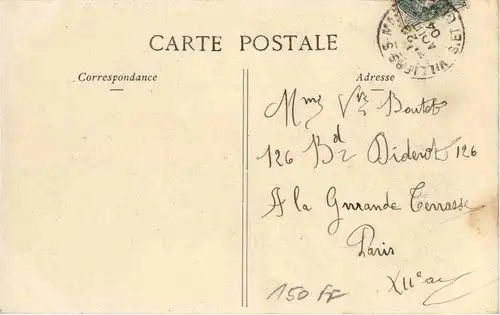 CARTE POSTALE
Correspondance
Adresse
Mme Vve Boutet
126 Bd Diderot 126
A la Grrande Terrasse
Paris
XIIe ar
150 FF
VILLIERS-S-MA
AOUT
04